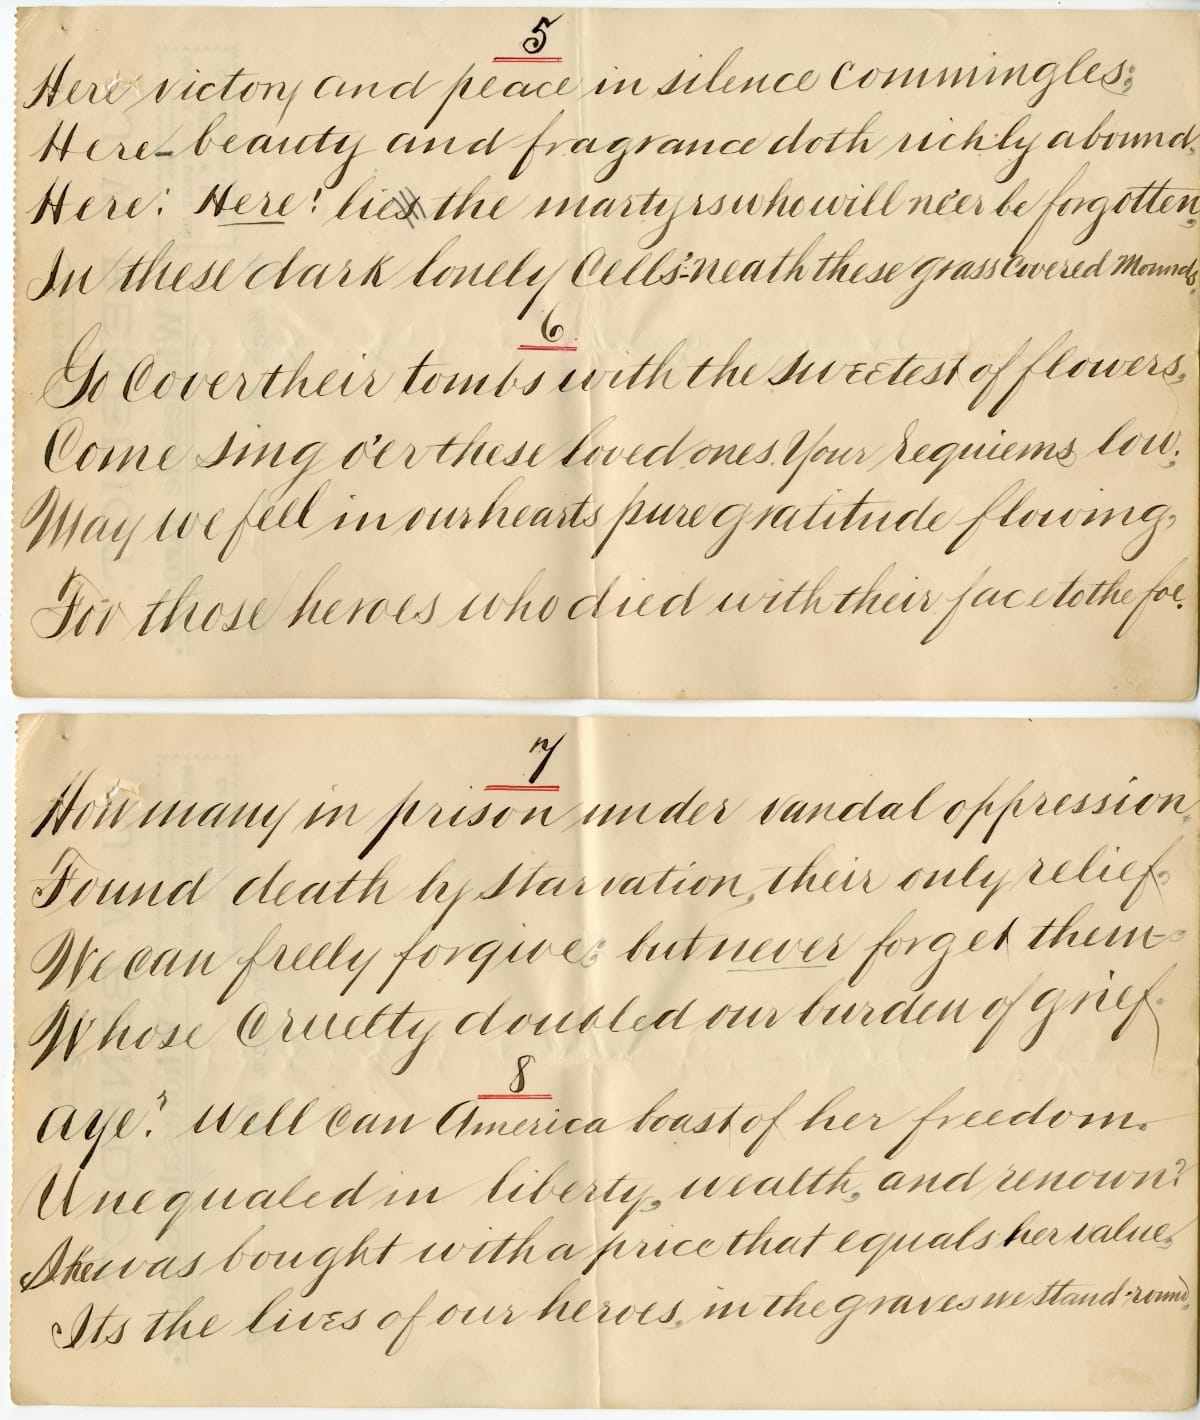 5
Here victory and peace in silence commingles;
Here - beauty and fragrance doth richly abound,
Here! Here! lies the martyrs who will ne'er be forgotten,
In these dark lonely Cells 'neath these grass Covered Mounds.
6
Go Cover their tombs with the sweetest of flowers,
Come sing o'er these loved ones. Your requiems low;
May we feel in our hearts pure gratitude flowing,
For those heroes who died with their face to the foe.
7
How many in prison under vandal oppression,
Found death by starvation, their only relief,
We can freely forgive; but never forget them -
Whose Cruelty doubled our burden of grief.
8
Aye! Well Can America boast of her freedom.
Unequaled in liberty, wealth, and renown?
She was bought with a price that equals her value,
Its the lives of our heroes, in the graves we stand-round,